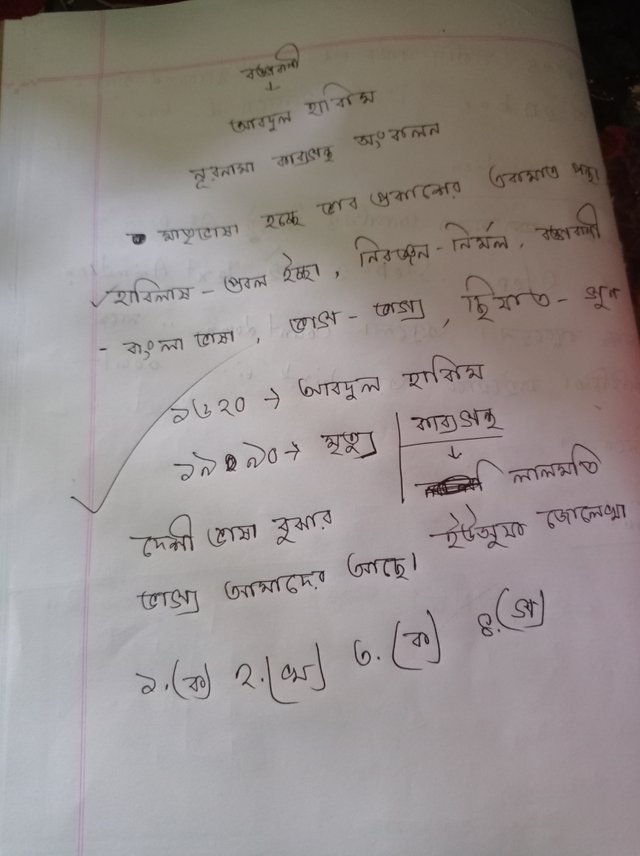 বঙ্গবাণী
↓
আবদুল হাকিম
নূরনামা কাব্যগ্রন্থ সংকলন
মাতৃভাষা হচ্ছে ভাব প্রকাশের একমাত্র পন্থা
✓ হাবিলাষ - প্রবল ইচ্ছা, নিরঞ্জন - নির্মল, বঙ্গবাণী
- বাংলা ভাষা, ভাগ - ভাগ্য, ছিফাত - গুণ
১৬২০ → আবদুল হাকিম
১৬৯০ → মৃত্যু | কাব্যগ্রন্থ
↓
লালমতি
দেশী ভাষা বুঝার
ইউসুফ জোলেখা
ভাগ্য আমাদের আছে।
১.(ক) ২.(খ) ৩.(ক) ৪.(গ)